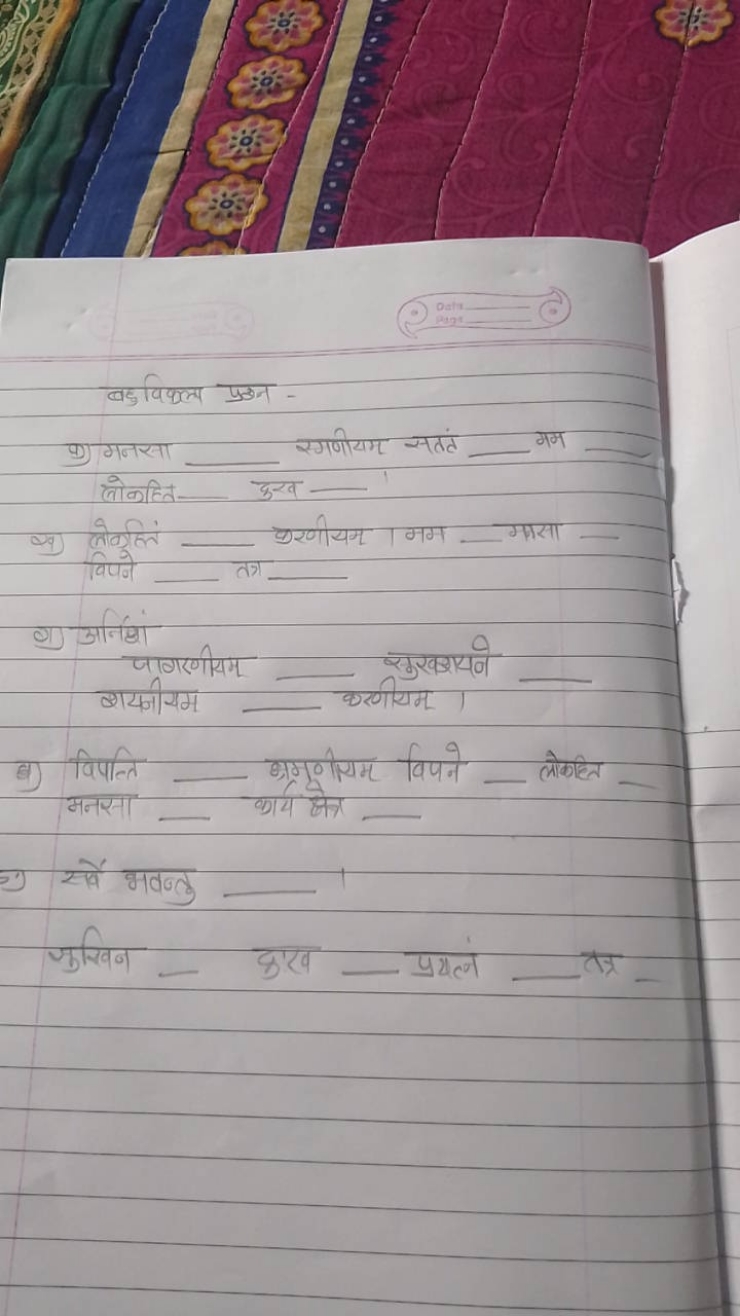 Date
Page
बहुविकल्प प्रश्न -
क) मनसा ____ स्मणीयम् सततं ____ मम ____
लोकहित ____ दुःख ____ '
ख) लोकहितं ____ करणीयम् । मम ____ मासा ____
विपने ____ तत्र ____
ग) अर्निशां
जागरणीयम् ____ सुखशयने ____
शयनीयम ____ करणीयम् ।
घ) विपत्ति ____ भ्रमणीयम विपने ____ लोकहित ____
मनसा ____ कार्य क्षेत्र ____
ङ) सर्वे भवन्तु ____ ।
सुखिन ____ दुःख ____ प्रयत्नं ____ तत्र ____